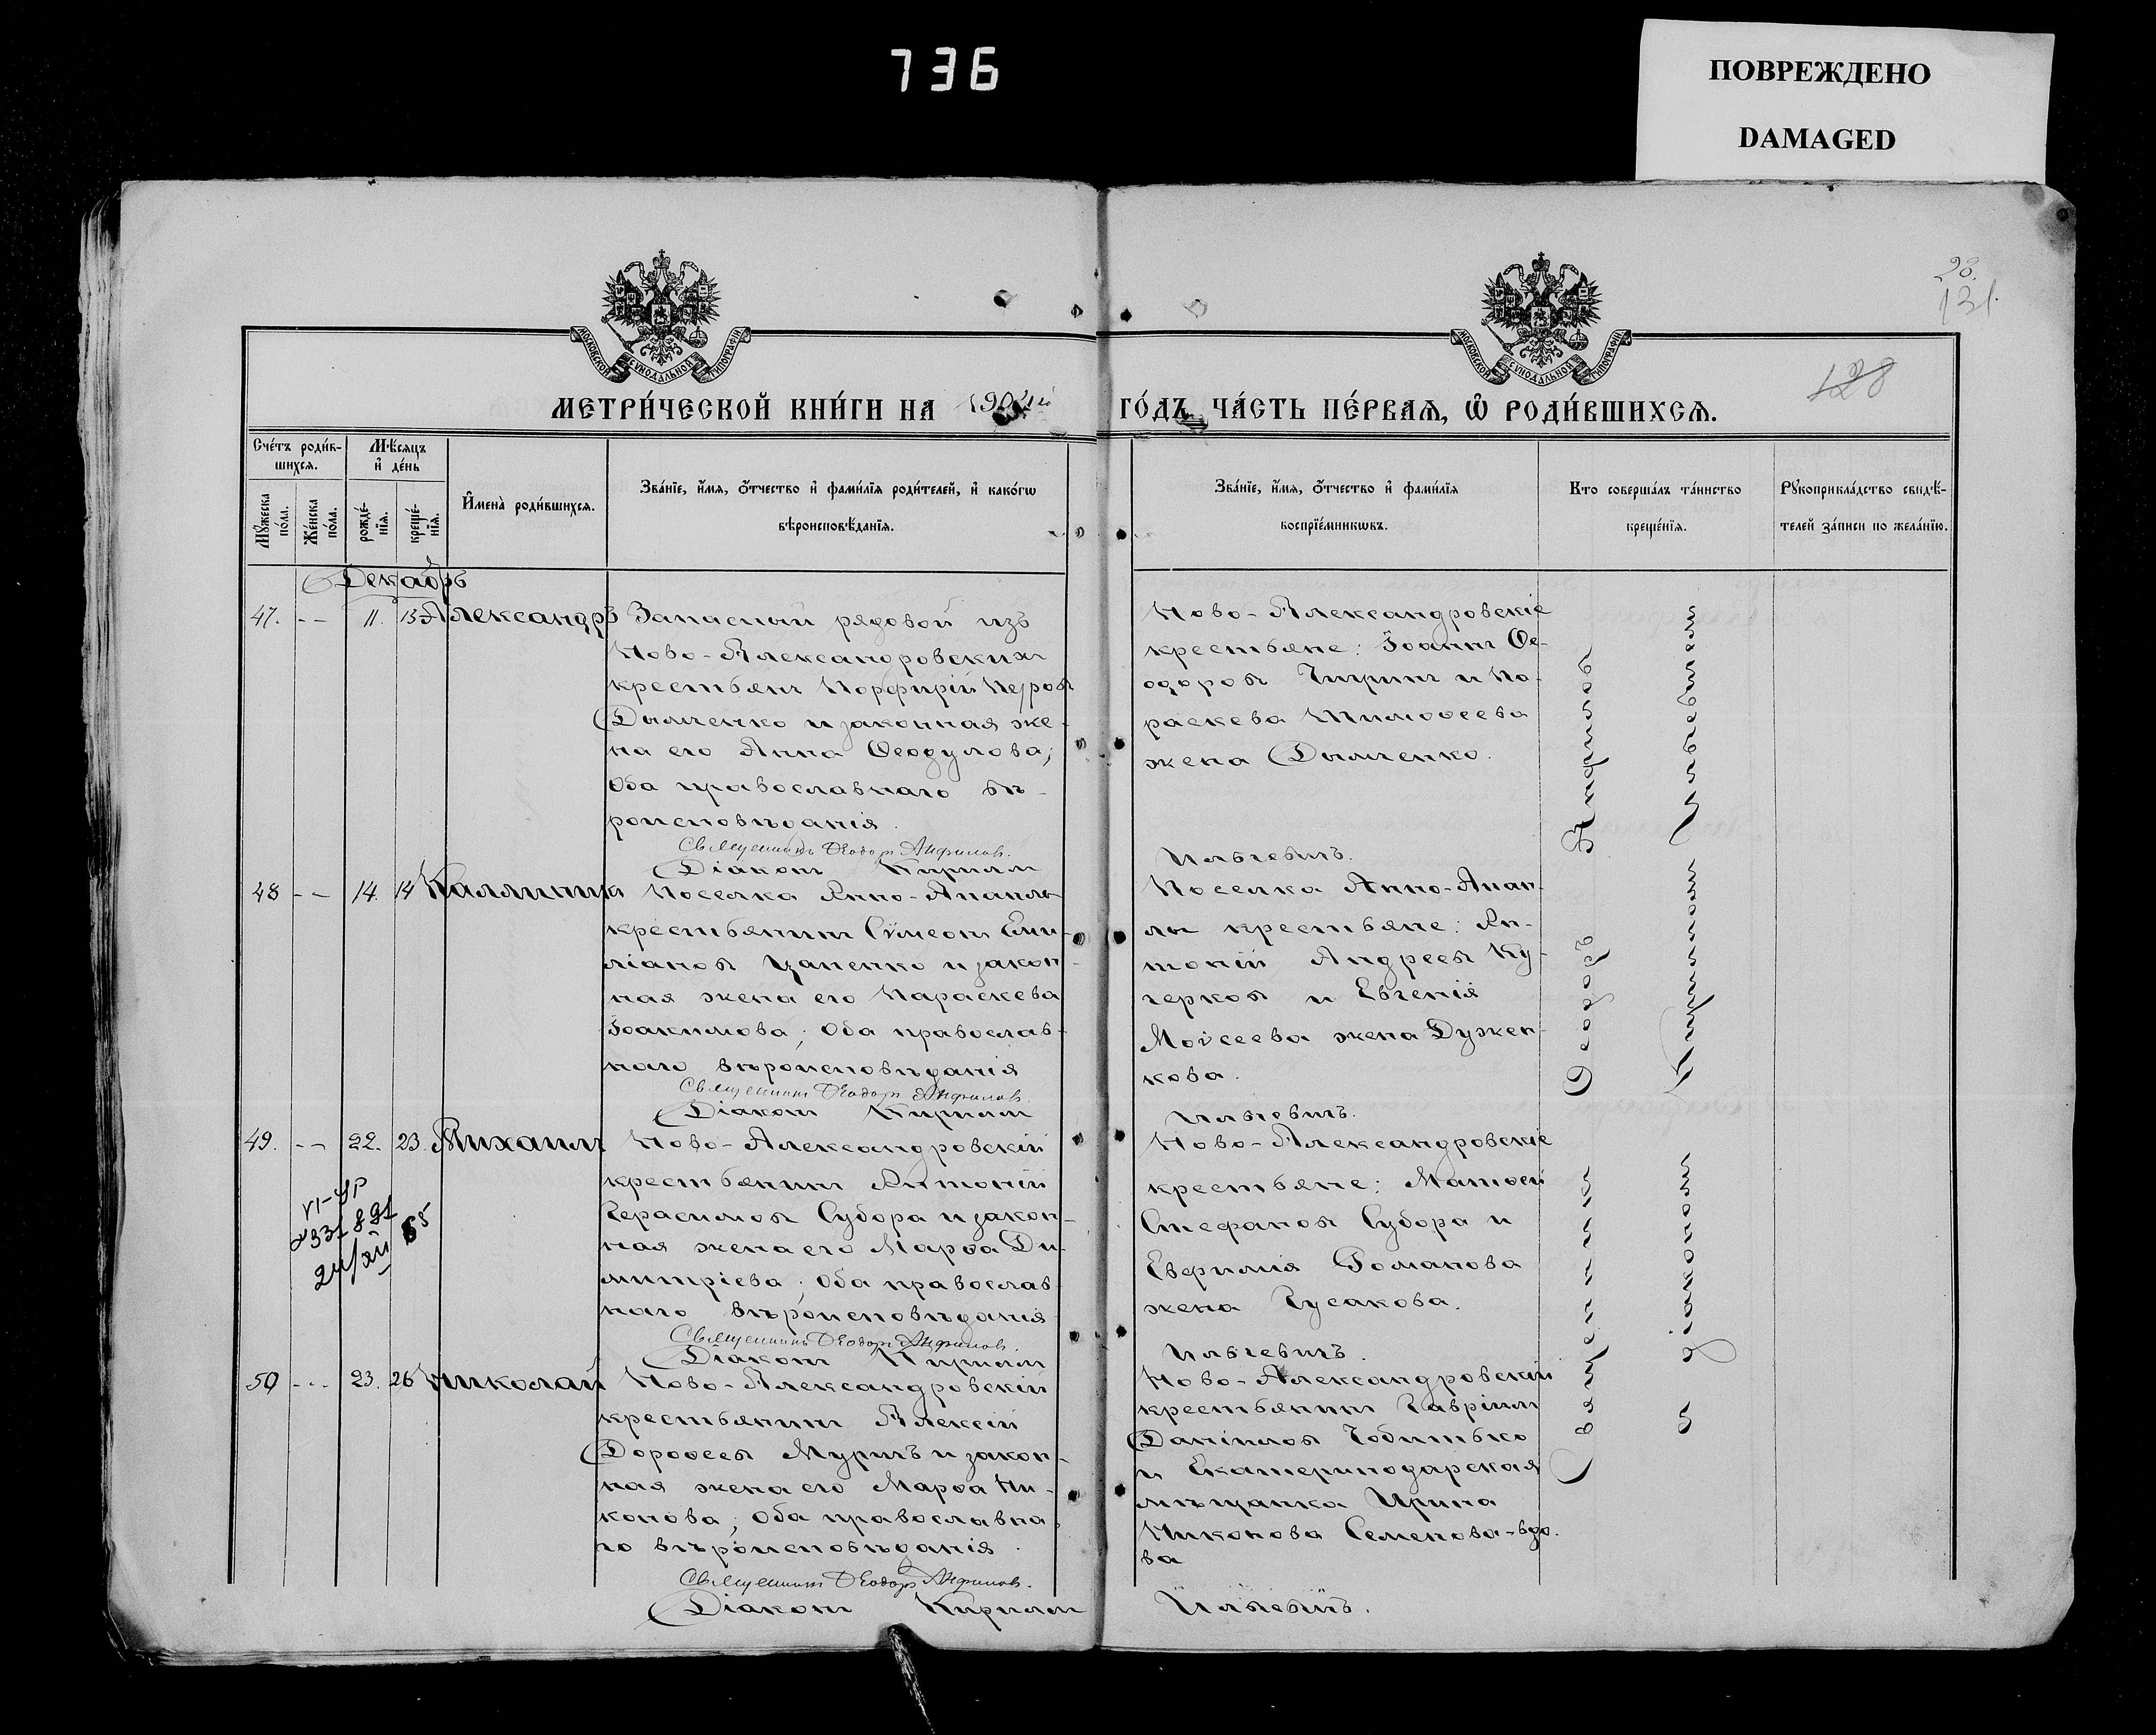 736
ПОВРЕЖДЕНО
DAMAGED
28.
131.
128
МОСКОВСКОЙ СѴНОДАЛЬНОЙ ТИПОГРАФІИ
МОСКОВСКОЙ СѴНОДАЛЬНОЙ ТИПОГРАФІИ
МЕТРИ́ЧЕСКОЙ КНИ́ГИ НА 1904й ГО́ДЪ, ЧА́СТЬ ПЕ́РВАЯ, Ѽ РОДИ́ВШИХСЯ.
Сче́тъ роди́в-
шихся.
Мѣ́сяцъ
и҆ де́нь
Мꙋ́жеска по́ла.
Же́нска по́ла.
рожде́-
нїя.
креще́-
нїя.
И҆мена̀ роди́вшихся.
Зва́нїе, и҆́мя, ѻ҆́тчество и҆ фами́лїя роди́телей, и҆ како́гѡ
вѣроисповѣ́данїя.
Зва́нїе, и҆́мя, ѻ҆́тчество и҆ фами́лїя
воспрїе́мникѡвъ.
Кто соверша́лъ та́инство
креще́нїя.
Рꙋкоприкла́дство свидѣ́-
телей за́писи по жела́нїю.
Декабрь
47. -- 11. 13 Александръ Запасный рядовой изъ
Ново-Александровскихъ
крестьянъ Порфирій Петровъ
Дымченко и законная же-
на его Анна Ѳеодулова;
Оба православнаго вѣ-
роисповѣданія.
Священникъ Ѳеодоръ Анфиловъ.
Діаконъ Кириллъ
Ново-Александровскіе
крестьяне: Іоаннъ Ѳе-
одоровъ Тигринъ и Па-
раскева Тимоѳеева
жена Дымченко.
Ильчевичъ.
48 -- 14. 14 Каллиникъ Поселка Анно-Анапы
крестьянинъ Сѵмеонъ Еми-
ліановъ Цапенко и закон-
ная жена его Параскева
Іоакимова; Оба православ-
наго вѣроисповѣданія
Священникъ Ѳеодоръ Анфиловъ.
Діаконъ Кириллъ
Поселка Анно-Анап-
лы крестьяне: Ан-
тоній Андреевъ Ку-
черковъ и Евгенія
Моѵсеева жена Дужен-
кова.
Ильчевичъ.
49. -- 22. 23. Михаилъ Ново-Александровскій
крестьянинъ Антоній
Герасимовъ Субора и закон-
ная жена его Марѳа Ди-
митріева; Оба православ-
наго вѣроисповѣданія
Священникъ Ѳеодоръ Анфиловъ.
Діаконъ Кириллъ
Ново-Александровскіе
крестьяне: Матѳей
Стефановъ Субора и
Евфимія Романова
жена Гусакова.
Ильчевичъ.
50 -- 23. 26 Николай Ново-Александровскій
крестьянинъ Алексій
Дороѳеевъ Муричъ и закон-
ная жена его Марѳа Ни-
конова; Оба православна-
го вѣроисповѣданія.
Священникъ Ѳеодоръ Анфиловъ.
Діаконъ Кириллъ
Ново-Александровскій
крестьянинъ Гавріилъ
Даніиловъ Чобитько
и Екатеринодарская
мѣщанка Ирина
Никонова Семенова-вдо-
ва
Ильчевичъ.
Священникъ Ѳеодоръ Анфиловъ
съ діакономъ Кирилломъ Ильчевичемъ